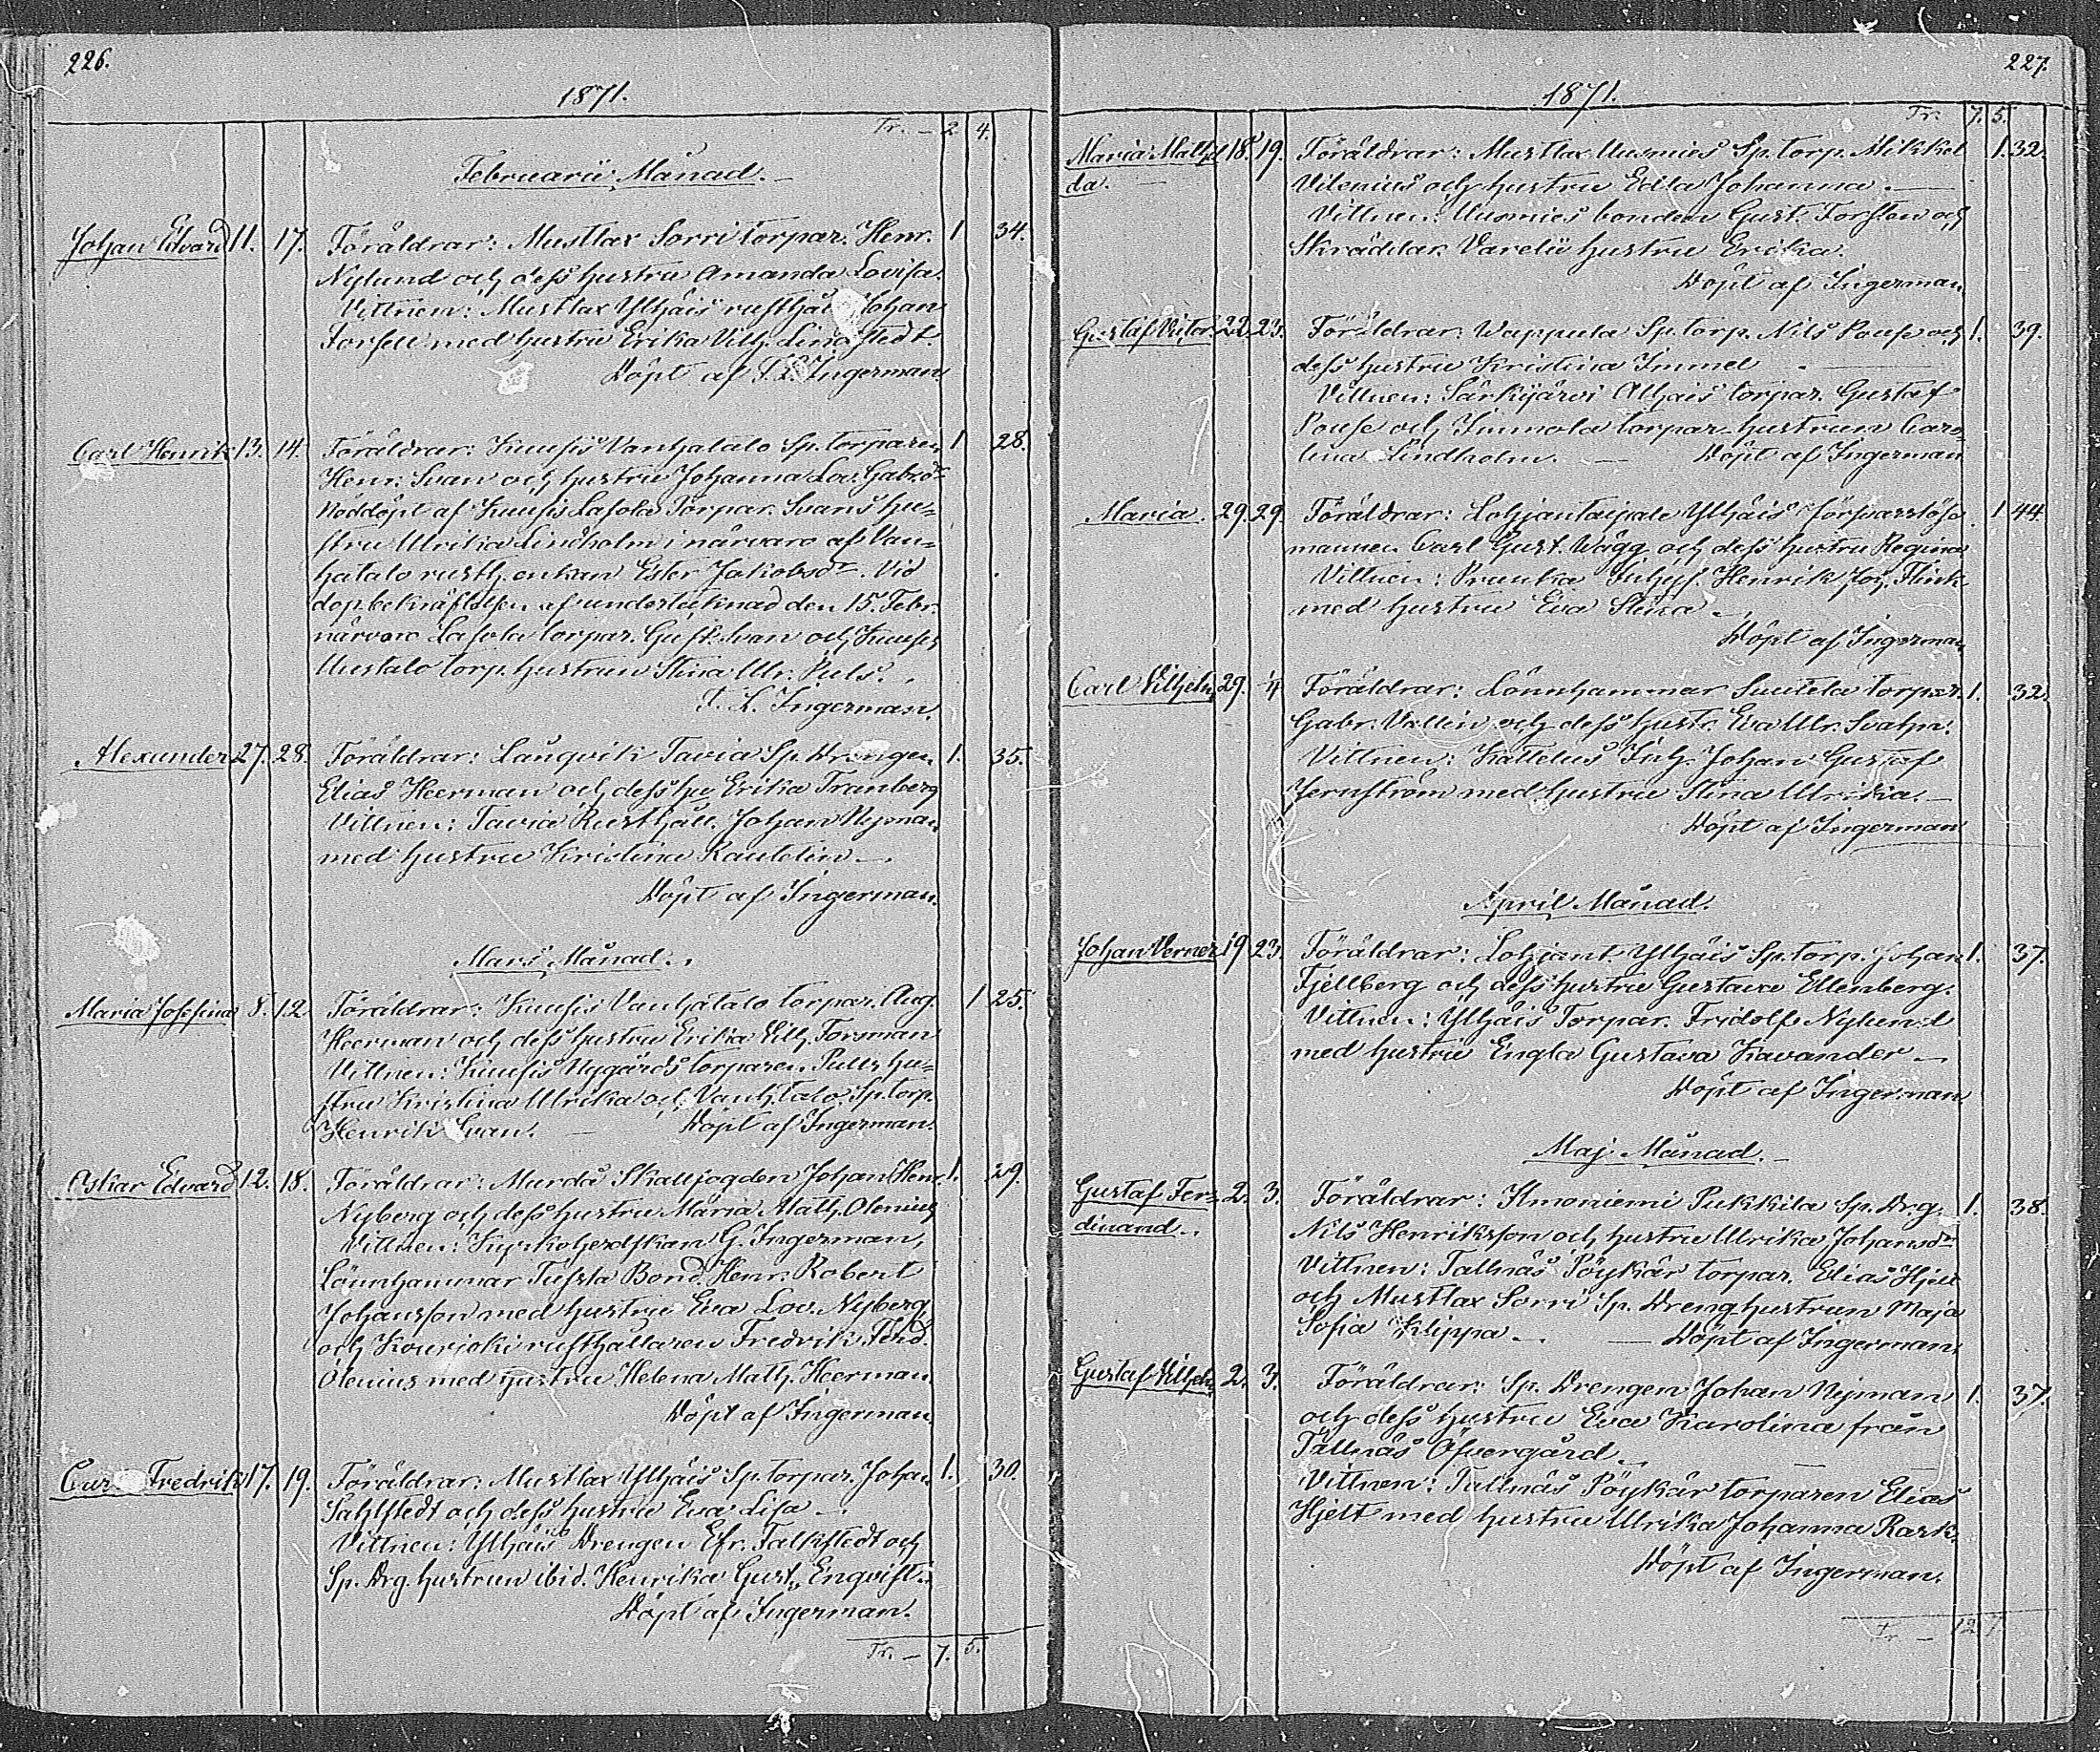 226.
1871.
Tr. - 2 4.
Februarii Månad.
Johan Edvard 11. 17. Föräldrar: Mustlax Sorri torpar. Henr. 1 34.
Nylund och dess hustru Amanda Lovisa.
Vittnen: Mustlax Ylhäis rusthål Johan
Forsell med hustru Erika Vilh. Lindstedt.
Döpt af F. L. Ingerman.
Carl Henrik 13. 14. Föräldrar: Kuusis Vanhatalo Sp. torparen 1 28.
Henr. Svan och hustru Johanna Lov. Gabr.dr
Nöddöpt af Kuusis Lasola Torpar. Svans hu-
stru Ulrika Lindholm i närvaro af Van-
hatalo rusth. enkan Ester Jakobsdr. Vid
dopbekräftelsen af undertecknad den 15. Febr.
närvaro Lasola torpar. Gust. Svan och Kuusis
Uustalo torp. hustrun Stina Ulr. Puls.
F. L. Ingerman.
Alexander 27. 28. Föräldrar: Långvik Tavia Sp. Drengen 1. 35.
Elias Heerman och dess hu Erika Tranberg
Vittnen: Tavia Rusthåll. Johan Nyman
med hustru Kristina Rautelin.
Döpt af Ingerman.
Mars Månad.
Maria Josefina 8. 12. Föräldrar: Kuusis Vanhatalo torpar. Aug. 1 25.
Heerman och dess hustru Erika Vilh. Forsman
Vittnen: Kuusis Nygårds torparen Pulls hu-
stru Kristina Ulrika och Vanhtalo Sp. torp.
Henrik Svan. Döpt af Ingerman.
Oskar Edvard 12. 18. Föräldrar: Murda Skallfogden Johan Henr. 1. 29.
Nyberg och dess hustru Maria Math. Olenius
Vittnen: Kyrkoherdskan G. Ingerman,
Lönnhammar Tufsla Bond. Henr. Robert
Johansson med hustru Eva Lov. Nyberg
och Kourjoki rusthållaren Fredrik Ferd.
Olenius med hustru Helena Math. Heerman.
Döpt af Ingerman.
Fredrik 17. 19. Föräldrar: Mustlax Ylhäis Sp. torpar. Johan 1. 30.
Sahlstedt och dess hustru Eva Lisa.
Vittnen: Ylhäis Drengen Efr. Falkstedt och
Sp. Drg. hustrun ibid. Henrika Gust. Enqvist.
Döpt af Ingerman.
Tr. - 7. 5.
227.
1871.
Tr. 7. 5.
Maria Mathil 18. 19. Föräldrar: Mustlax Uusmies Sp. torp. Mikkel 1. 32.
da. Vilenius och hustru Edla Johanna.
Vittnen: Uusmies bonden Gust. Forsten och
Skräddar. Varelii hustru Erika.
Döpt af Ingerman.
Gustaf Victor. 22. 23. Föräldrar: Wapputa Sp. torp. Nils Pouse och 1. 39.
dess hustru Kristina Immel
Vittnen: Särkijärvi Alhais torpar. Gustaf
Pouse och Immola torpar hustrun Caro-
lina Lindholm. Döpt af Ingerman
Maria. 29. 29. Föräldrar: Lohjantaipale Ylhäis försvarslöse 1 44.
mannen Carl Gust. Wägg och dess hustru Regina
Vittnen: Prunka Inhys. Henrik Joh. Flink
med hustru Eva Stina.
Döpt af Ingerman
Carl Vilhelm 29. 4 Föräldrar: Lönnhammar Suutela torpar. 1. 32.
Gabr. Vallin och dess hustr. Eva Ulr. Svahn.
Vittnen: Kattelus Inh. Johan Gustaf
Jernström med hustru Stina Ulrika.
Döpt af Ingerman
April Månad.
Johan Verner 19 23. Föräldrar: Lohjant. Ylhäis Sp. torp. Johan 1. 37.
Fjellberg och dess hustru Gustava Ellenberg.
Vittnen: Ylhäis Torpar. Fridolf Nylund
med hustru Engla Gustava Kavander.
Döpt af Ingerman.
Maj Månad.
Gustaf Fer- 2. 3. Föräldrar: Ilmoniemi Pukkila Sp. Drg. 1. 38.
dinand. Nils Henriksson och hustru Ulrika Johansdr
Vittnen: Tallnäs Pöykär torpar. Elias Hjelt
och Mustlax Sorri Sp. Dreng hustrun Maja
Sofia Klippa. Döpt af Ingerman.
Gustaf Vilhelm 2. 3. Föräldrar: Sp. Drengen Johan Nyman 1. 37.
och dess hustru Eva Karolina från
Tallnäs Öfvergård.
Vittnen: Tallnäs Pöykär torparen Elias
Hjelt med hustru Ulrika Johanna Rask.
Döpt af Ingerman.
Tr - 12 7